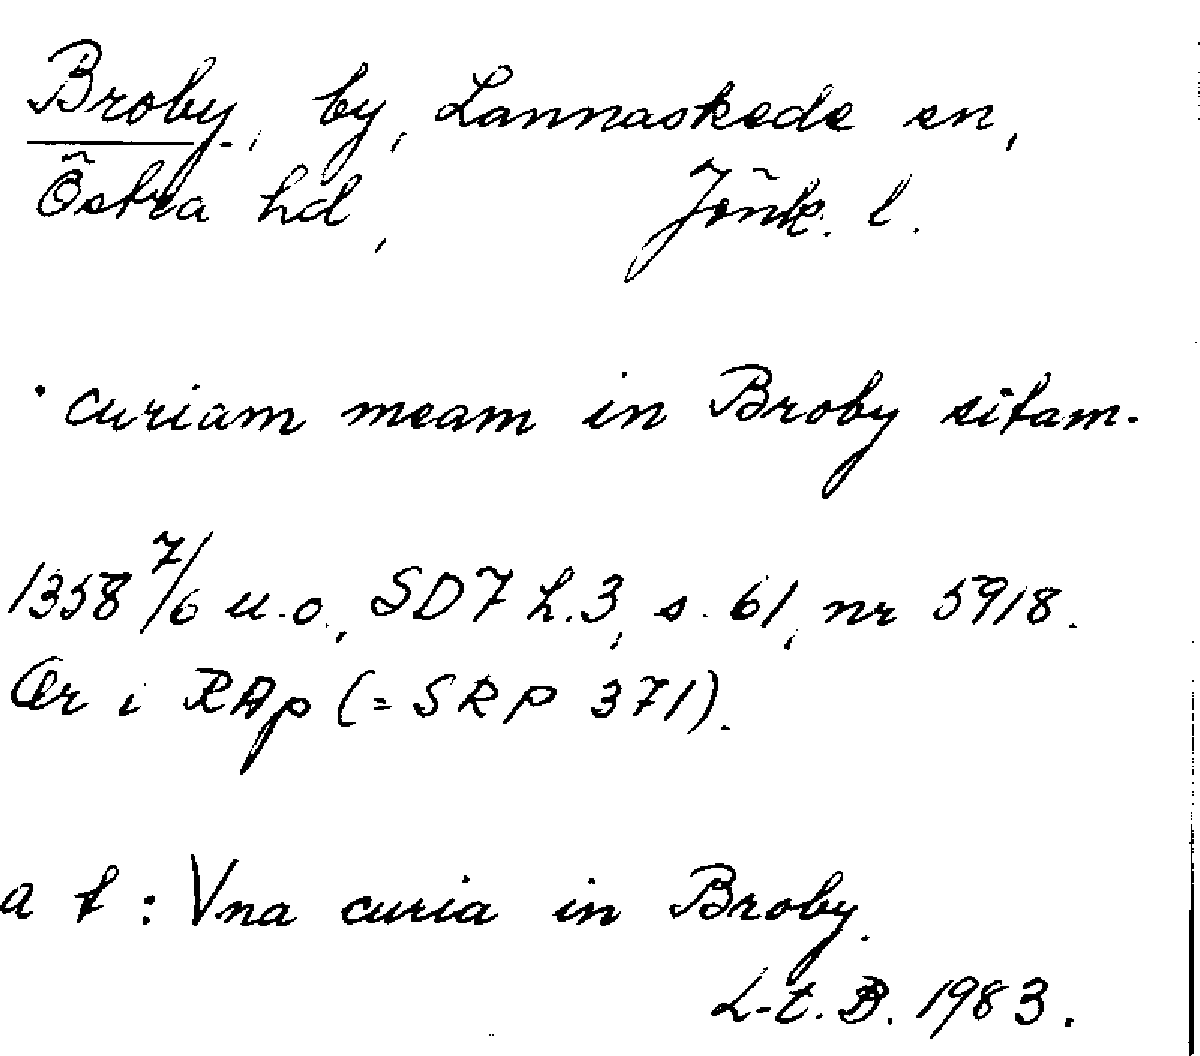 Broby, by, Lannaskede sn,
Östra hd, Jönk. l.
· curiam meam in Broby sitam.
1358 7/6 u.o., SD7 h.3, s. 61, nr 5918.
Or i RAp (= SRP 371).
a t : Vna curia in Broby.
L-t. B. 1983.